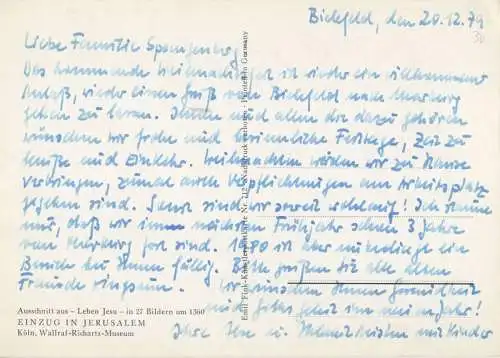 Bielefeld, den 20.12.79
30
Liebe Familie Spangenberg,
Das kommende Weihnachtsfest ist wieder ein willkommener
Anlaß, wieder einen Gruß von Bielefeld nach Marburg
gehen zu lassen. Ihnen und allen die dazu gehören
wünschen wir frohe und besinnliche Festtage, Zeit zu
Muße und Einkehr. Weihnachten werden wir zu Hause
verbringen, zumal auch Verpflichtungen am Arbeitsplatz
gegeben sind. Sonst sind wir soweit wohlauf! Ich staune
nur, daß wir im nächsten Frühjahr schon 3 Jahre
von Marburg fort sind. 1980 ist aber unbedingt ein
Besuch bei Ihnen fällig. Bitte grüßen Sie alle alten
Freunde ringsum. Wir wünschen Ihnen Gesundheit
und Gutes jetzt im neuen Jahr!
Ihre Ilse u. Helmut mit Kinder
Ausschnitt aus – Leben Jesu – in 27 Bildern um 1360
EINZUG IN JERUSALEM
Köln, Wallraf-Richartz-Museum
Emil Fink-Kunstpostkarte Nr. 212 · Nachdruck verboten · Printed in Germany